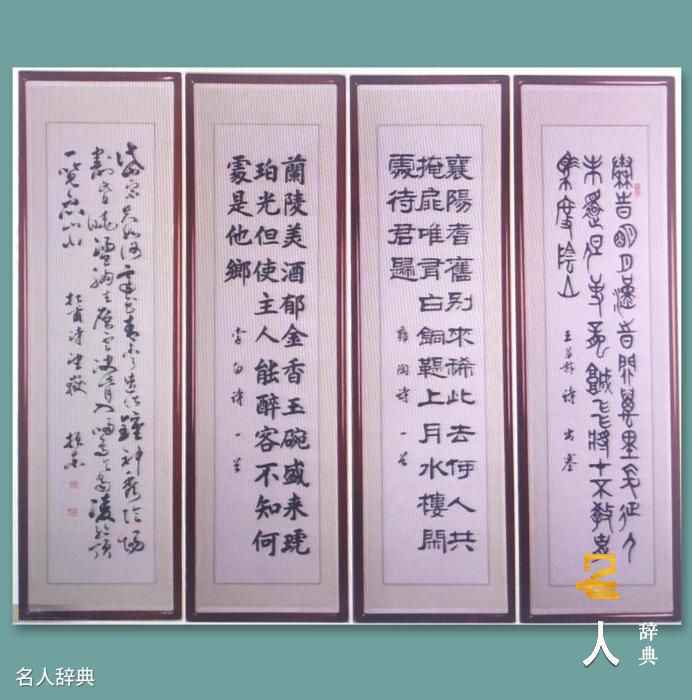 秦昔明月漢昔關萬里長征人
未還但使龍城飛將才不教胡
馬度陰山
王昌齡詩出塞
襄陽耆舊别來稀此去何人共
掩扉唯有白銅鞮上月水樓閑
處待君歸
雍陶詩一首
蘭陵美酒郁金香玉碗盛来琥
珀光但使主人能醉客不知何
處是他鄉
李白詩一首
岱宗夫如何齊魯青未了造化鍾神秀陰陽
割昏曉盪胸生層雲決眥入歸鳥會當凌絕頂
一覽眾山小
杜甫詩望嶽
名人辞典
人
辞典